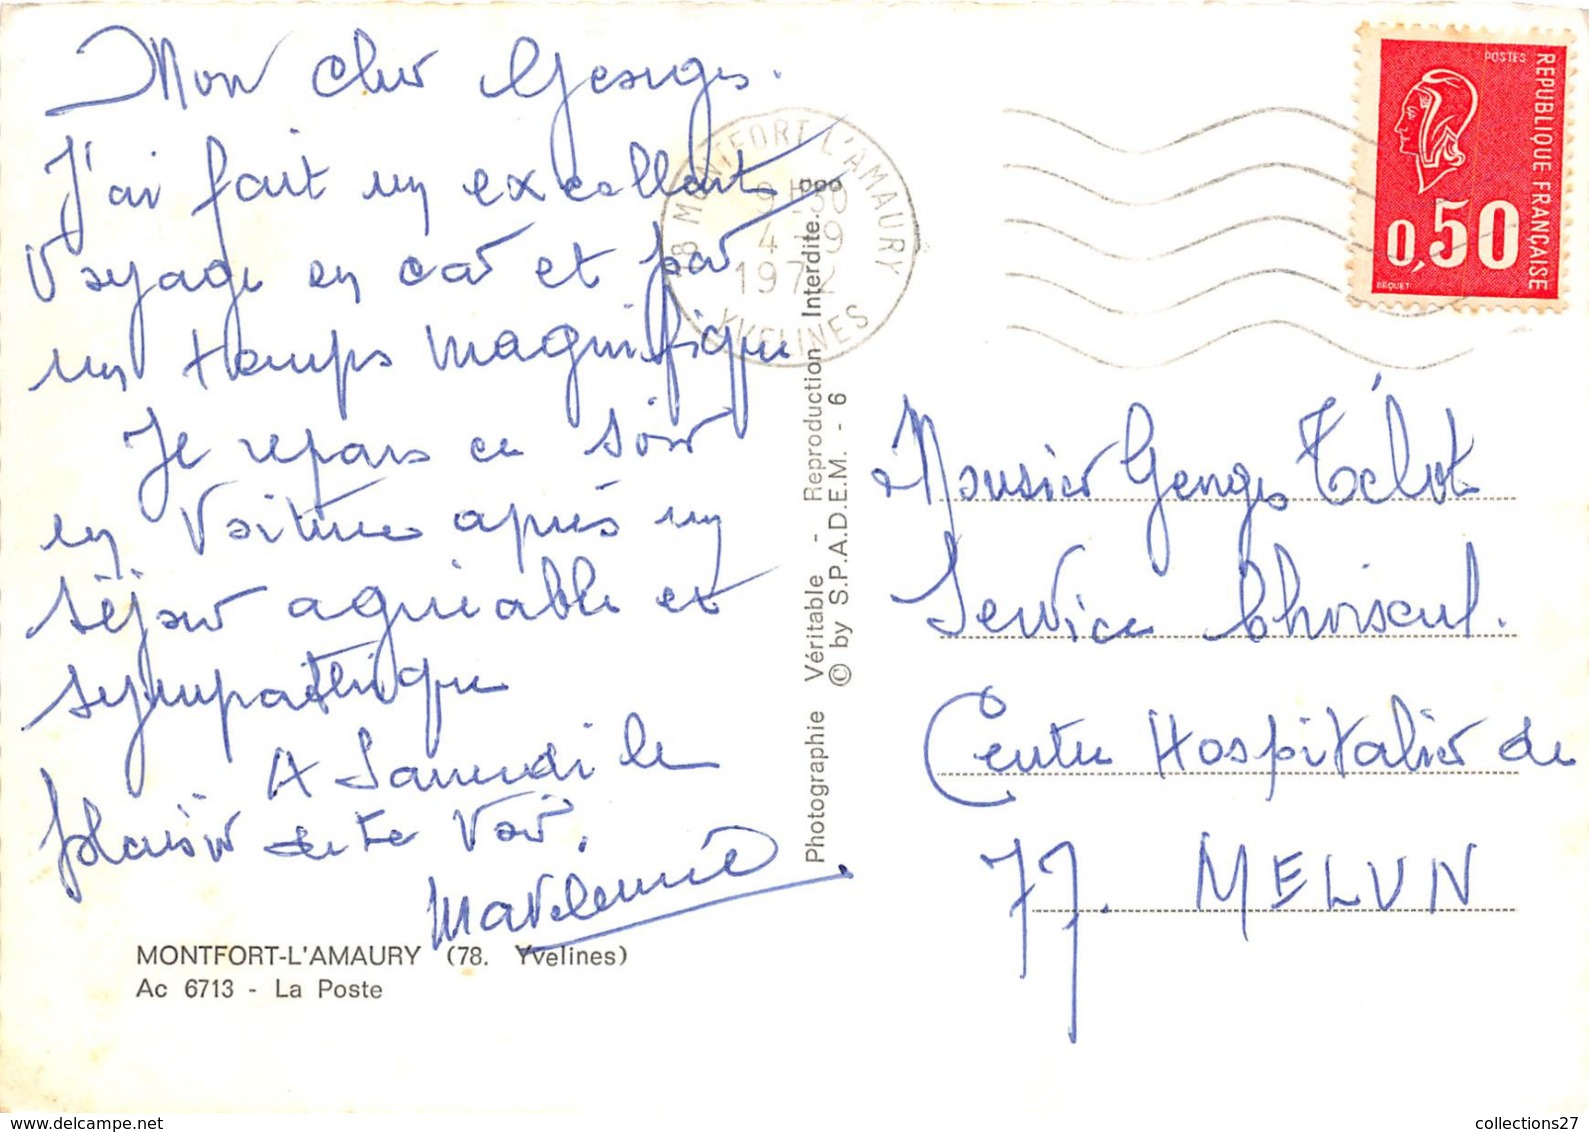 Mon cher Georges.
J'ai fait un excellent
voyage en car et par
un temps magnifique
Je repars ce soir
en voiture après un
séjour agréable et
sympathique
A Samedi le
plaisir de te voir.
Madeleine
MONTFORT-L'AMAURY (78. Yvelines)
Ac 6713 - La Poste
Photographie Véritable - Reproduction Interdite.
© by S.P.A.D.E.M. - 6
78 MONTFORT L'AMAURY
9H30
4 - 9
1972
YVELINES
POSTES
REPUBLIQUE FRANÇAISE
0,50
BEQUET
Monsieur Georges
Service Choiseul.
Centre Hospitalier de
77. MELUN
collections27